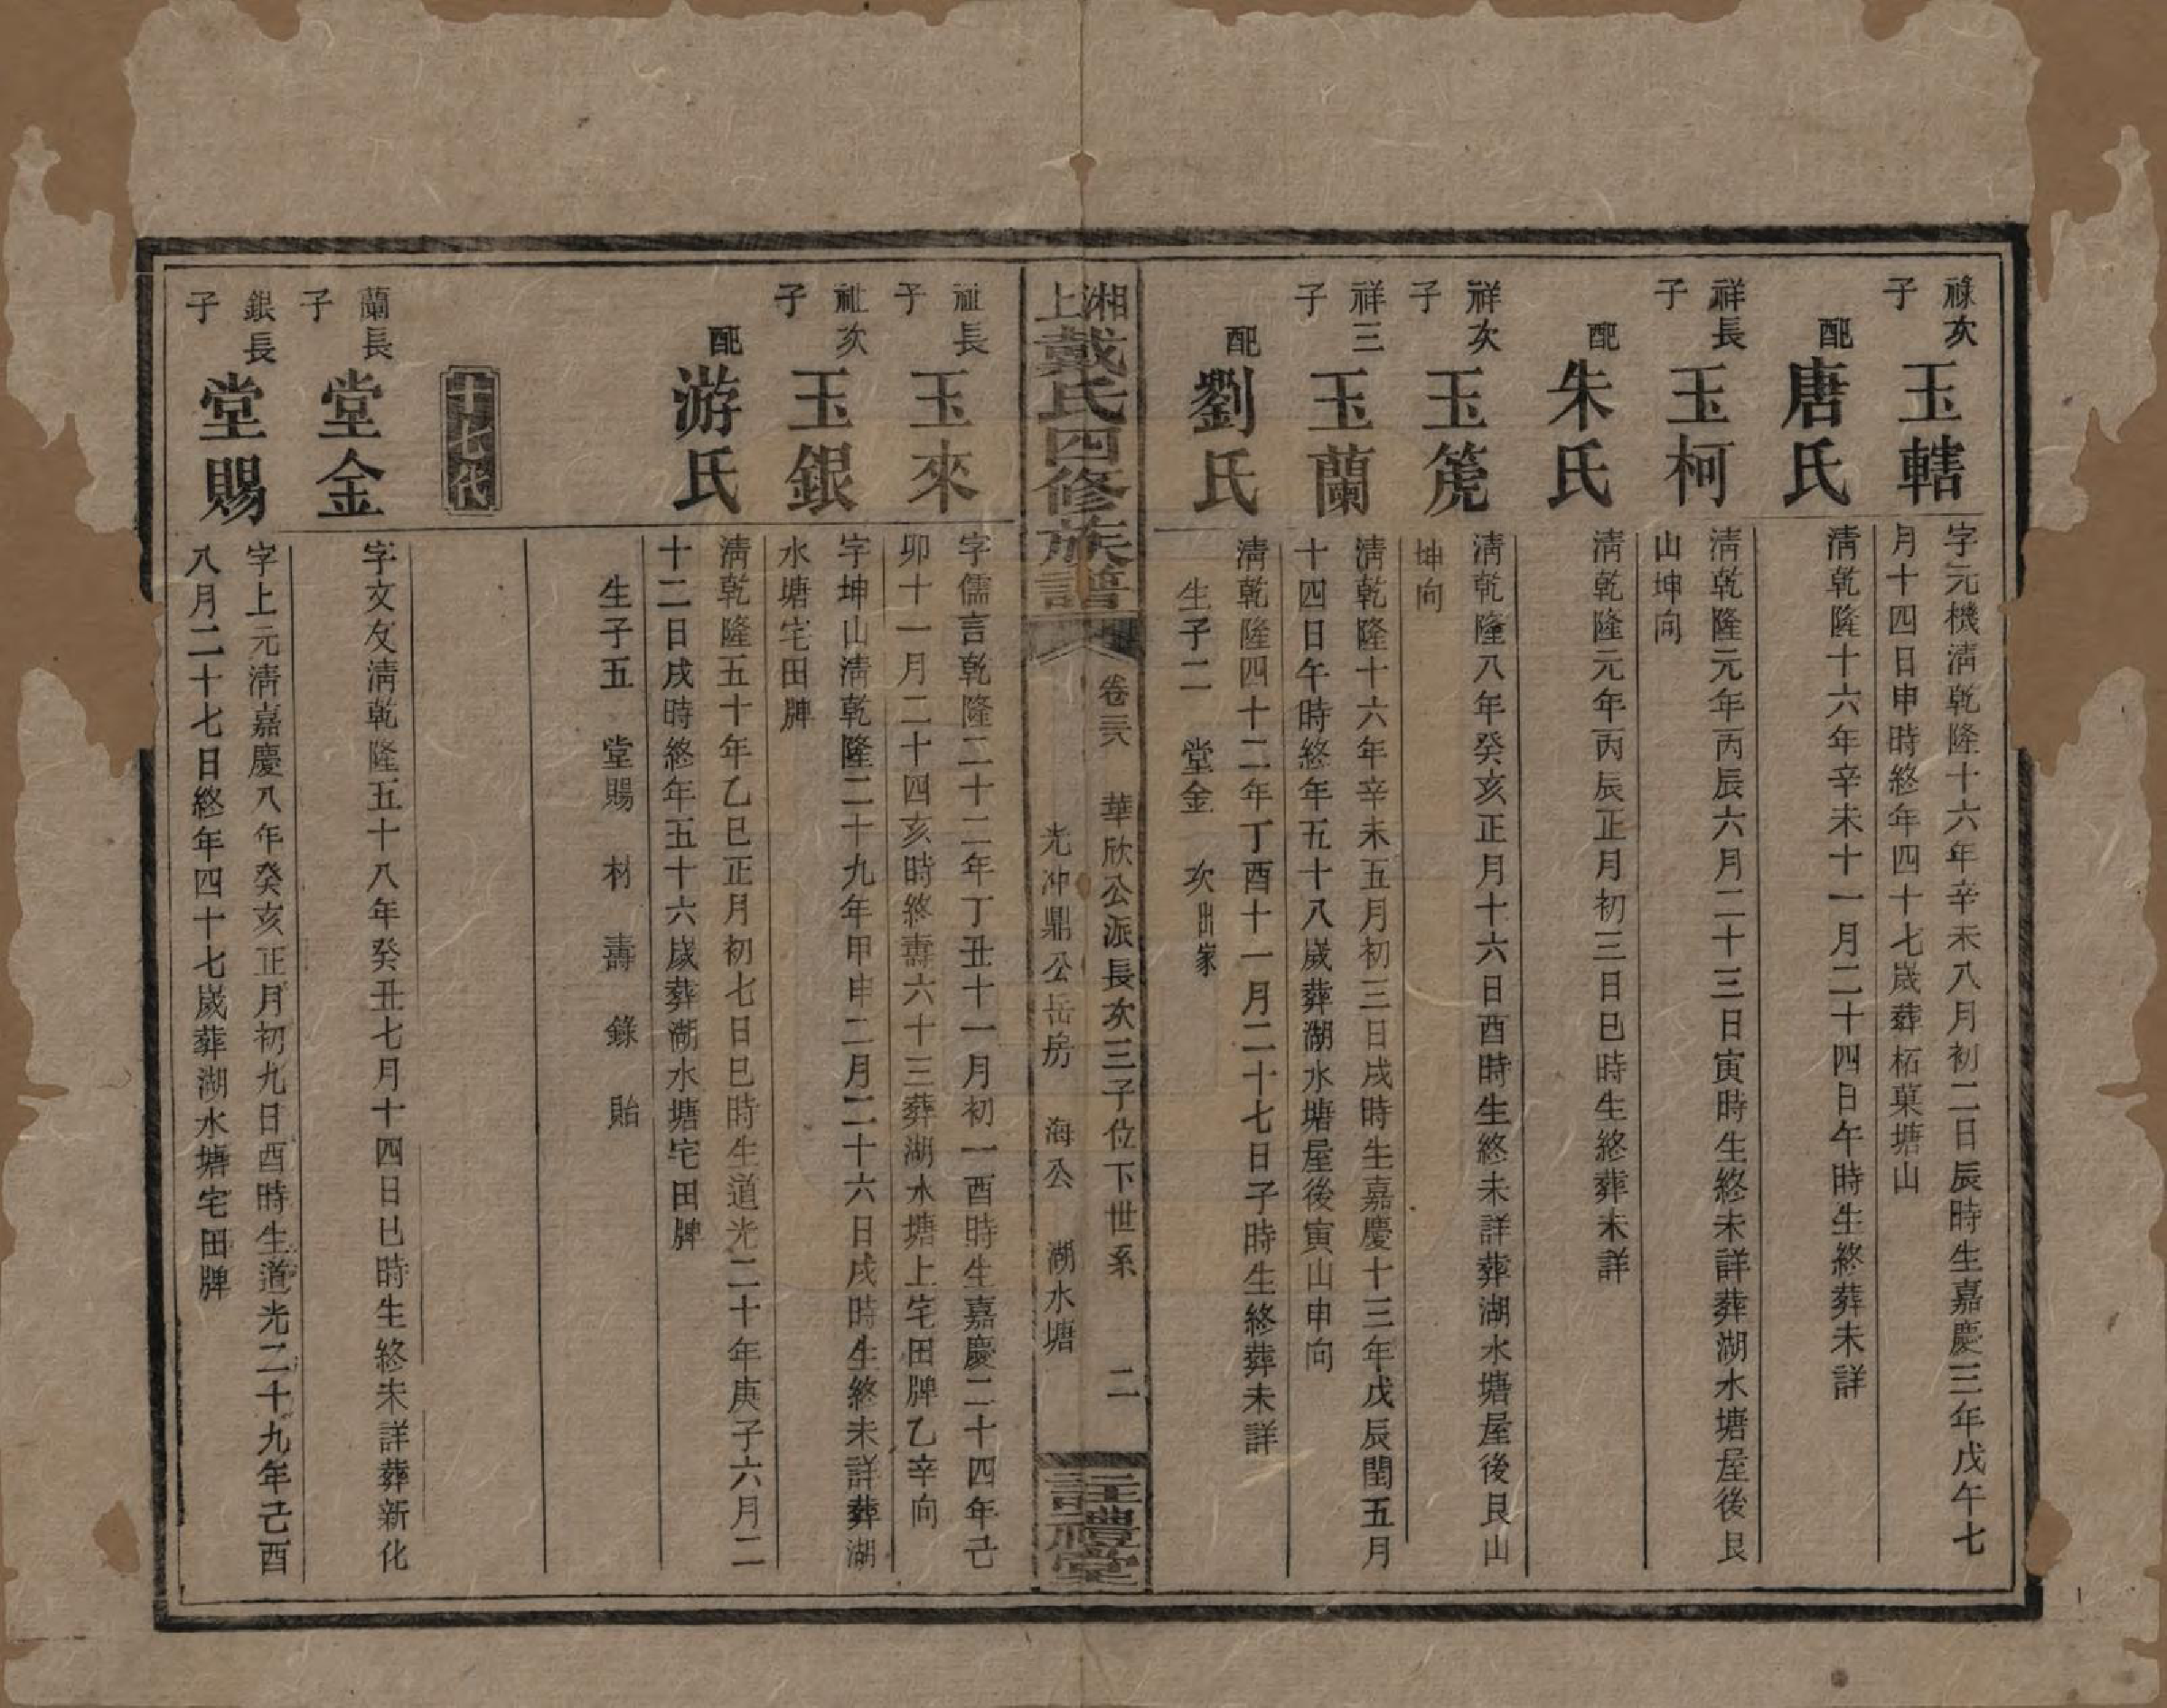 祿次子
玉轄
字元機清乾隆十六年辛未八月初二日辰時生嘉慶三年戊午七
月十四日申時終年四十七歲葬柘菓塘山
配
唐氏
清乾隆十六年辛未十一月二十四日午時生終葬未詳
祥長子
玉柯
清乾隆元年丙辰六月二十三日寅時生終未詳葬湖水塘屋後艮
山坤向
配
朱氏
清乾隆元年丙辰正月初三日巳時生終葬未詳
祥次子
玉箎
清乾隆八年癸亥正月十六日酉時生終未詳葬湖水塘屋後艮山
坤向
祥三子
玉蘭
清乾隆十六年辛未五月初三日戌時生嘉慶十三年戊辰閏五月
十四日午時終年五十八歲葬湖水塘屋後寅山申向
配
劉氏
清乾隆四十二年丁酉十一月二十七日子時生終葬未詳
生子二 堂金 次出家
湘上戴氏四修族譜
卷三六 華欣公派長次三子位下世系 二
光冲鼎公岳房 海公 湖水塘
註禮堂
祉長子
玉來
字儒言乾隆二十二年丁丑十一月初一酉時生嘉慶二十四年己
卯十一月二十四亥時終壽六十三葬湖水塘上宅田牌乙辛向
祉次子
玉銀
字坤山清乾隆二十九年甲申二月二十六日戌時生終未詳葬湖
水塘宅田牌
配
游氏
清乾隆五十年乙巳正月初七日巳時生道光二十年庚子六月二
十二日戌時終年五十六歲葬湖水塘宅田牌
生子五 堂賜 材 壽 錄 貽
十七代
蘭長子
堂金
字文友清乾隆五十八年癸丑七月十四日巳時生終未詳葬新化
銀長子
堂賜
字上元清嘉慶八年癸亥正月初九日酉時生道光二十九年己酉
八月二十七日終年四十七歲葬湖水塘宅田牌